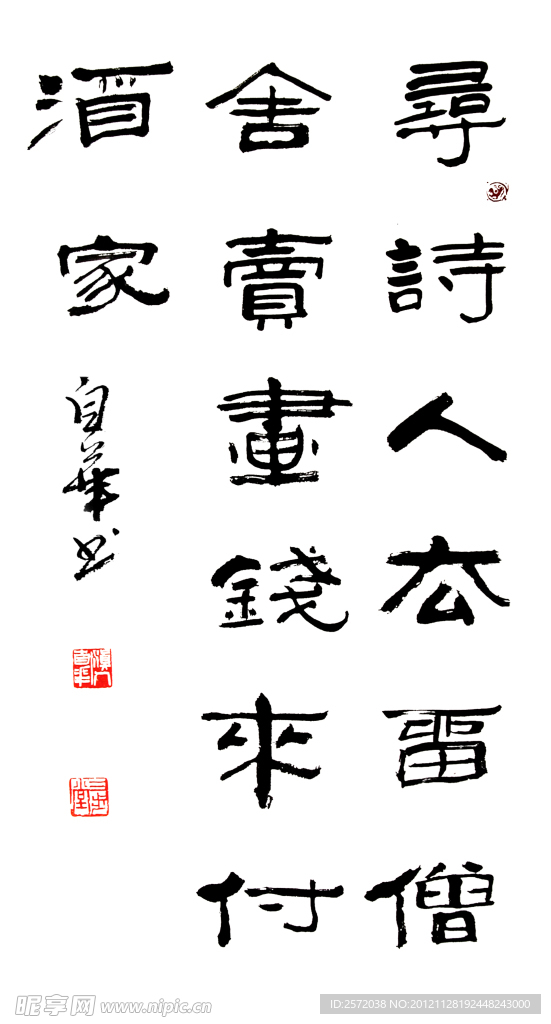 尋詩人去留僧
舍賣畫錢來付
酒家
自華书
昵享网 www.nipic.cn
ID:2572038 NO:20121128192448243000